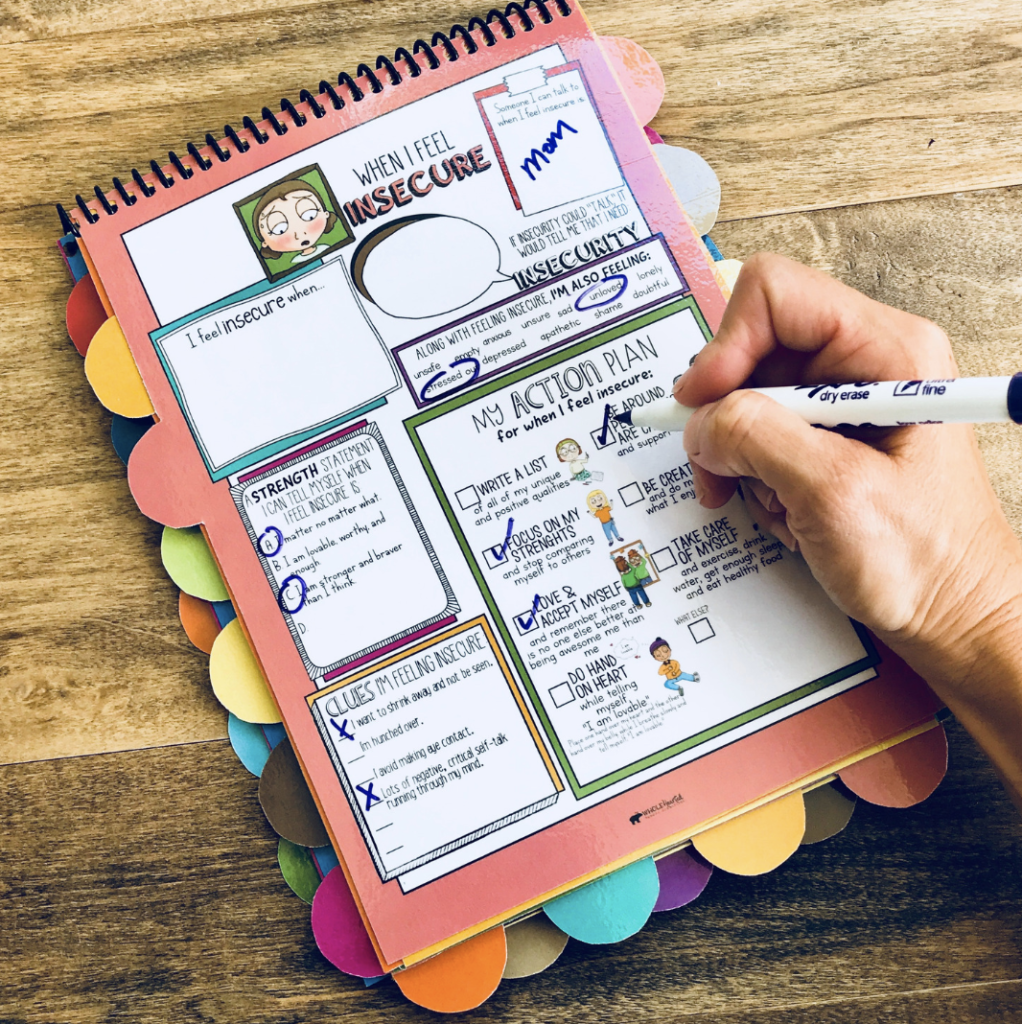 WHEN I FEEL
INSECURE
Someone I can talk to
when I feel insecure is
Mom
IF INSECURITY COULD "TALK" IT
WOULD TELL ME THAT I NEED
INSECURITY
I feel insecure when...
ALONG WITH FEELING INSECURE, I'M ALSO FEELING:
unsafe empty anxious unsure sad unloved lonely
stressed out depressed apathetic shame doubtful
A STRENGTH STATEMENT
I CAN TELL MYSELF WHEN
I FEEL INSECURE IS
A I matter no matter what.
B I am lovable, worthy, and
enough
C I am stronger and braver
than I think
D
CLUES I'M FEELING INSECURE
X I want to shrink away and not be seen.
Im hunched over.
I avoid making eye contact.
X Lots of negative, critical self-talk
running through my mind.
MY ACTION PLAN
for when I feel insecure:
WRITE A LIST
of all of my unique
and positive qualities
FOCUS ON MY
STRENGHTS
and stop comparing
myself to others
LOVE &
ACCEPT MYSELF
and remember there
is no one else better at
being awesome me than
me
DO HAND
ON HEART
while telling
myself,
"I am lovable"
Place one hand over my heart and the other
hand over my belly while I breathe slowly and
tell myself "I am lovable"
BE AROUND
ARE
and support
BE
and do
what I
TAKE CARE
OF MYSELF
and exercise, drink
water, get enough sleep
and eat healthy food
WHAT ELSE?
WHOLEhearted
dry erase
ultra
fine